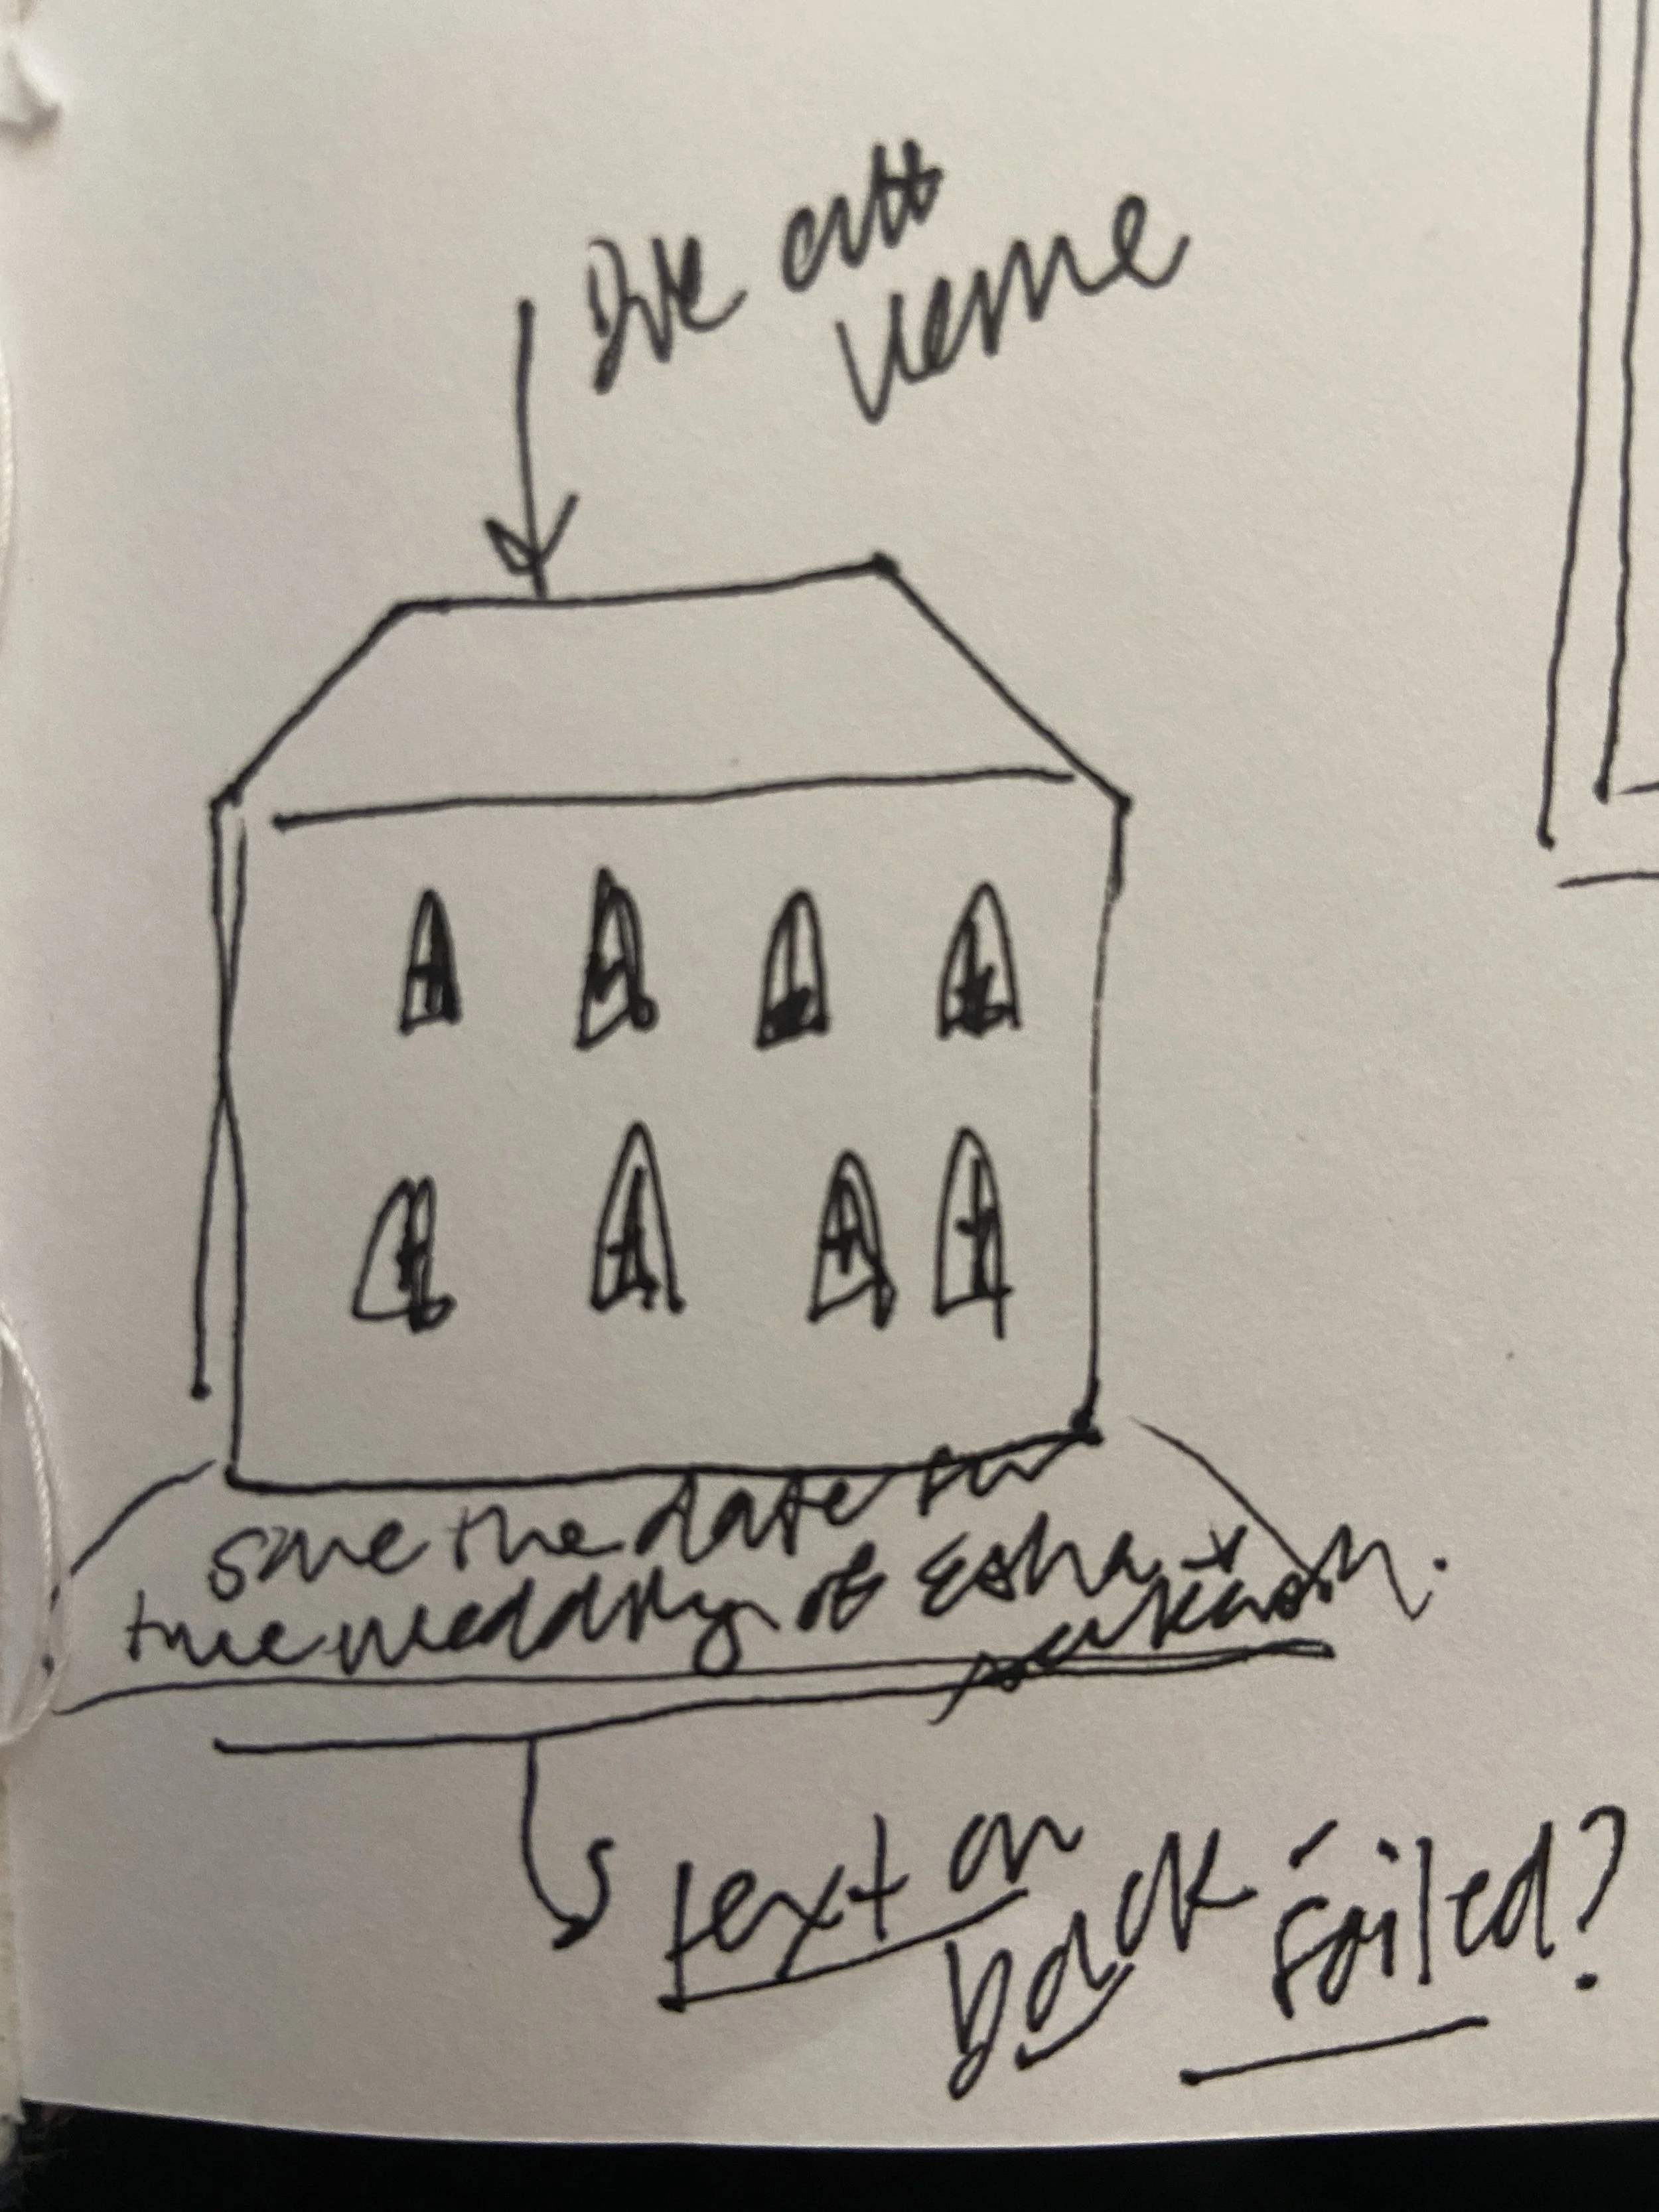 Die cutt
venue
Save the date for
the wedding of Esha +
text on
back foiled?